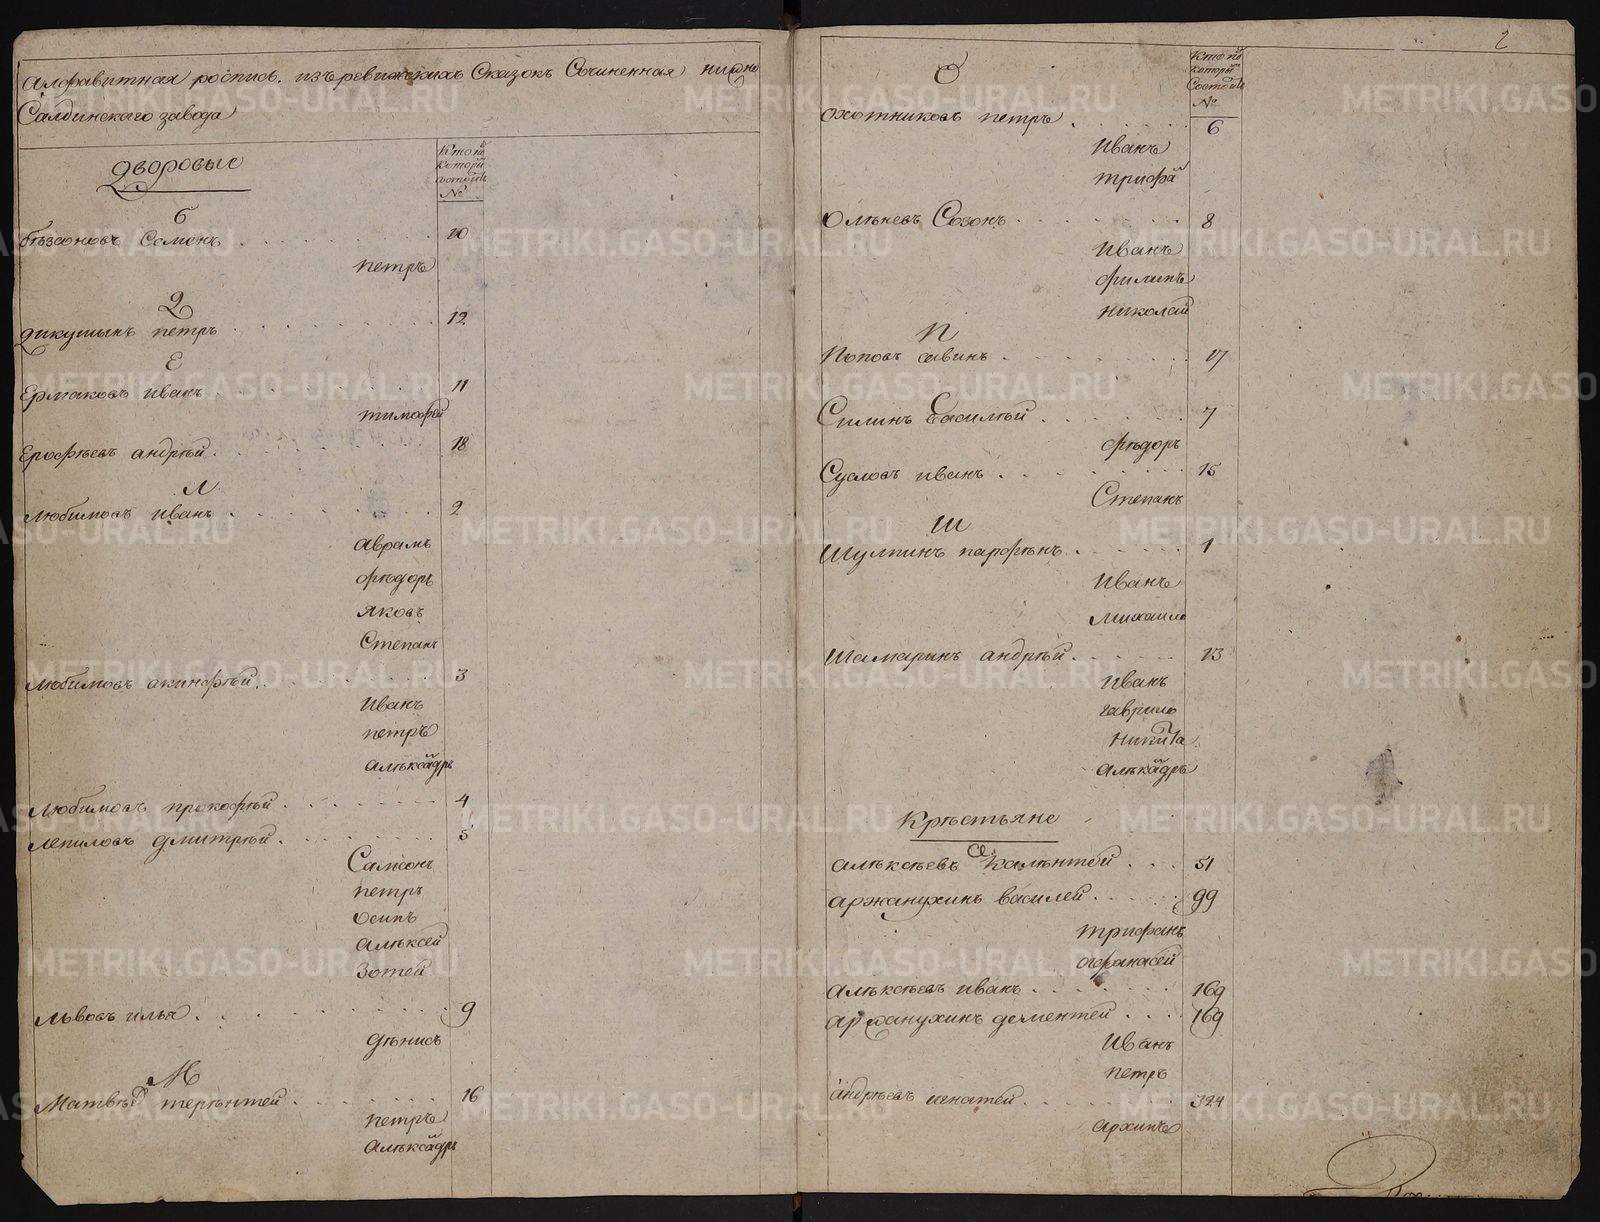 Алфавитная роспись изъ ревижскихъ Сказокъ Сочиненная нижно
Салдинского завода
Дворовые
Кто по
которы
состоитъ
№
Б
бѣзоновъ Семенъ 10
петръ
Д
дикушынъ петръ 12
Е
Ермаковъ иванъ 11
тимофей
Ерофѣевъ андрѣй 18
Л
любимовъ иванъ 2
аврамъ
фѣдоръ
яковъ
Степанъ
любимовъ акинфѣй 3
иванъ
петръ
алѣксадръ
любимовъ прокофѣй 4
лепиловъ дмитрѣй 5
Самсонъ
петръ
осипъ
алѣксей
зотей
львовъ илья 9
дѣнисъ
М
Матвѣев терѣнтей 16
петръ
алѣксадръ
2
О
Кто по
которы
Состоитъ
№
охотниковъ петръ 6
иванъ
трифа
Олѣневъ Созонъ 8
иванъ
филипъ
николай
П
Поповъ савинъ 17
С
Силинъ василѣй 7
фѣдоръ
Сусловъ иванъ 15
Степанъ
Ш
Шулпинъ парфѣнъ 1
иванъ
михаило
Шамаринъ андрѣй 13
иванъ
гаврило
никита
алѣкадръ
Крѣстьяне
алѣксѣевъ калѣнтей 51
аржанухинъ василей 99
трифанъ
афанасей
алѣксѣевъ иванъ 169
аржанухинъ дементей 169
иванъ
петръ
андрѣевъ игнатей 324
архипъ
METRIKI.GASO-URAL.RU